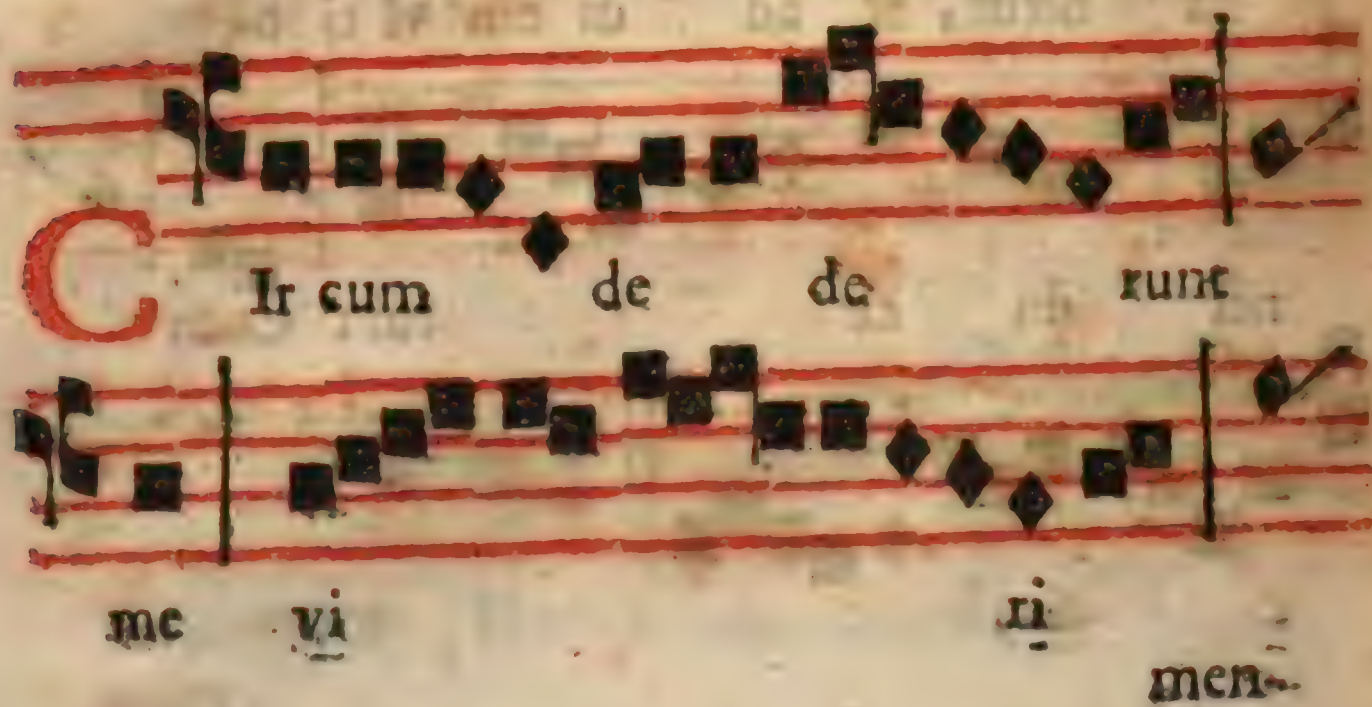 CIr cum de de runt
me vi ri
men-